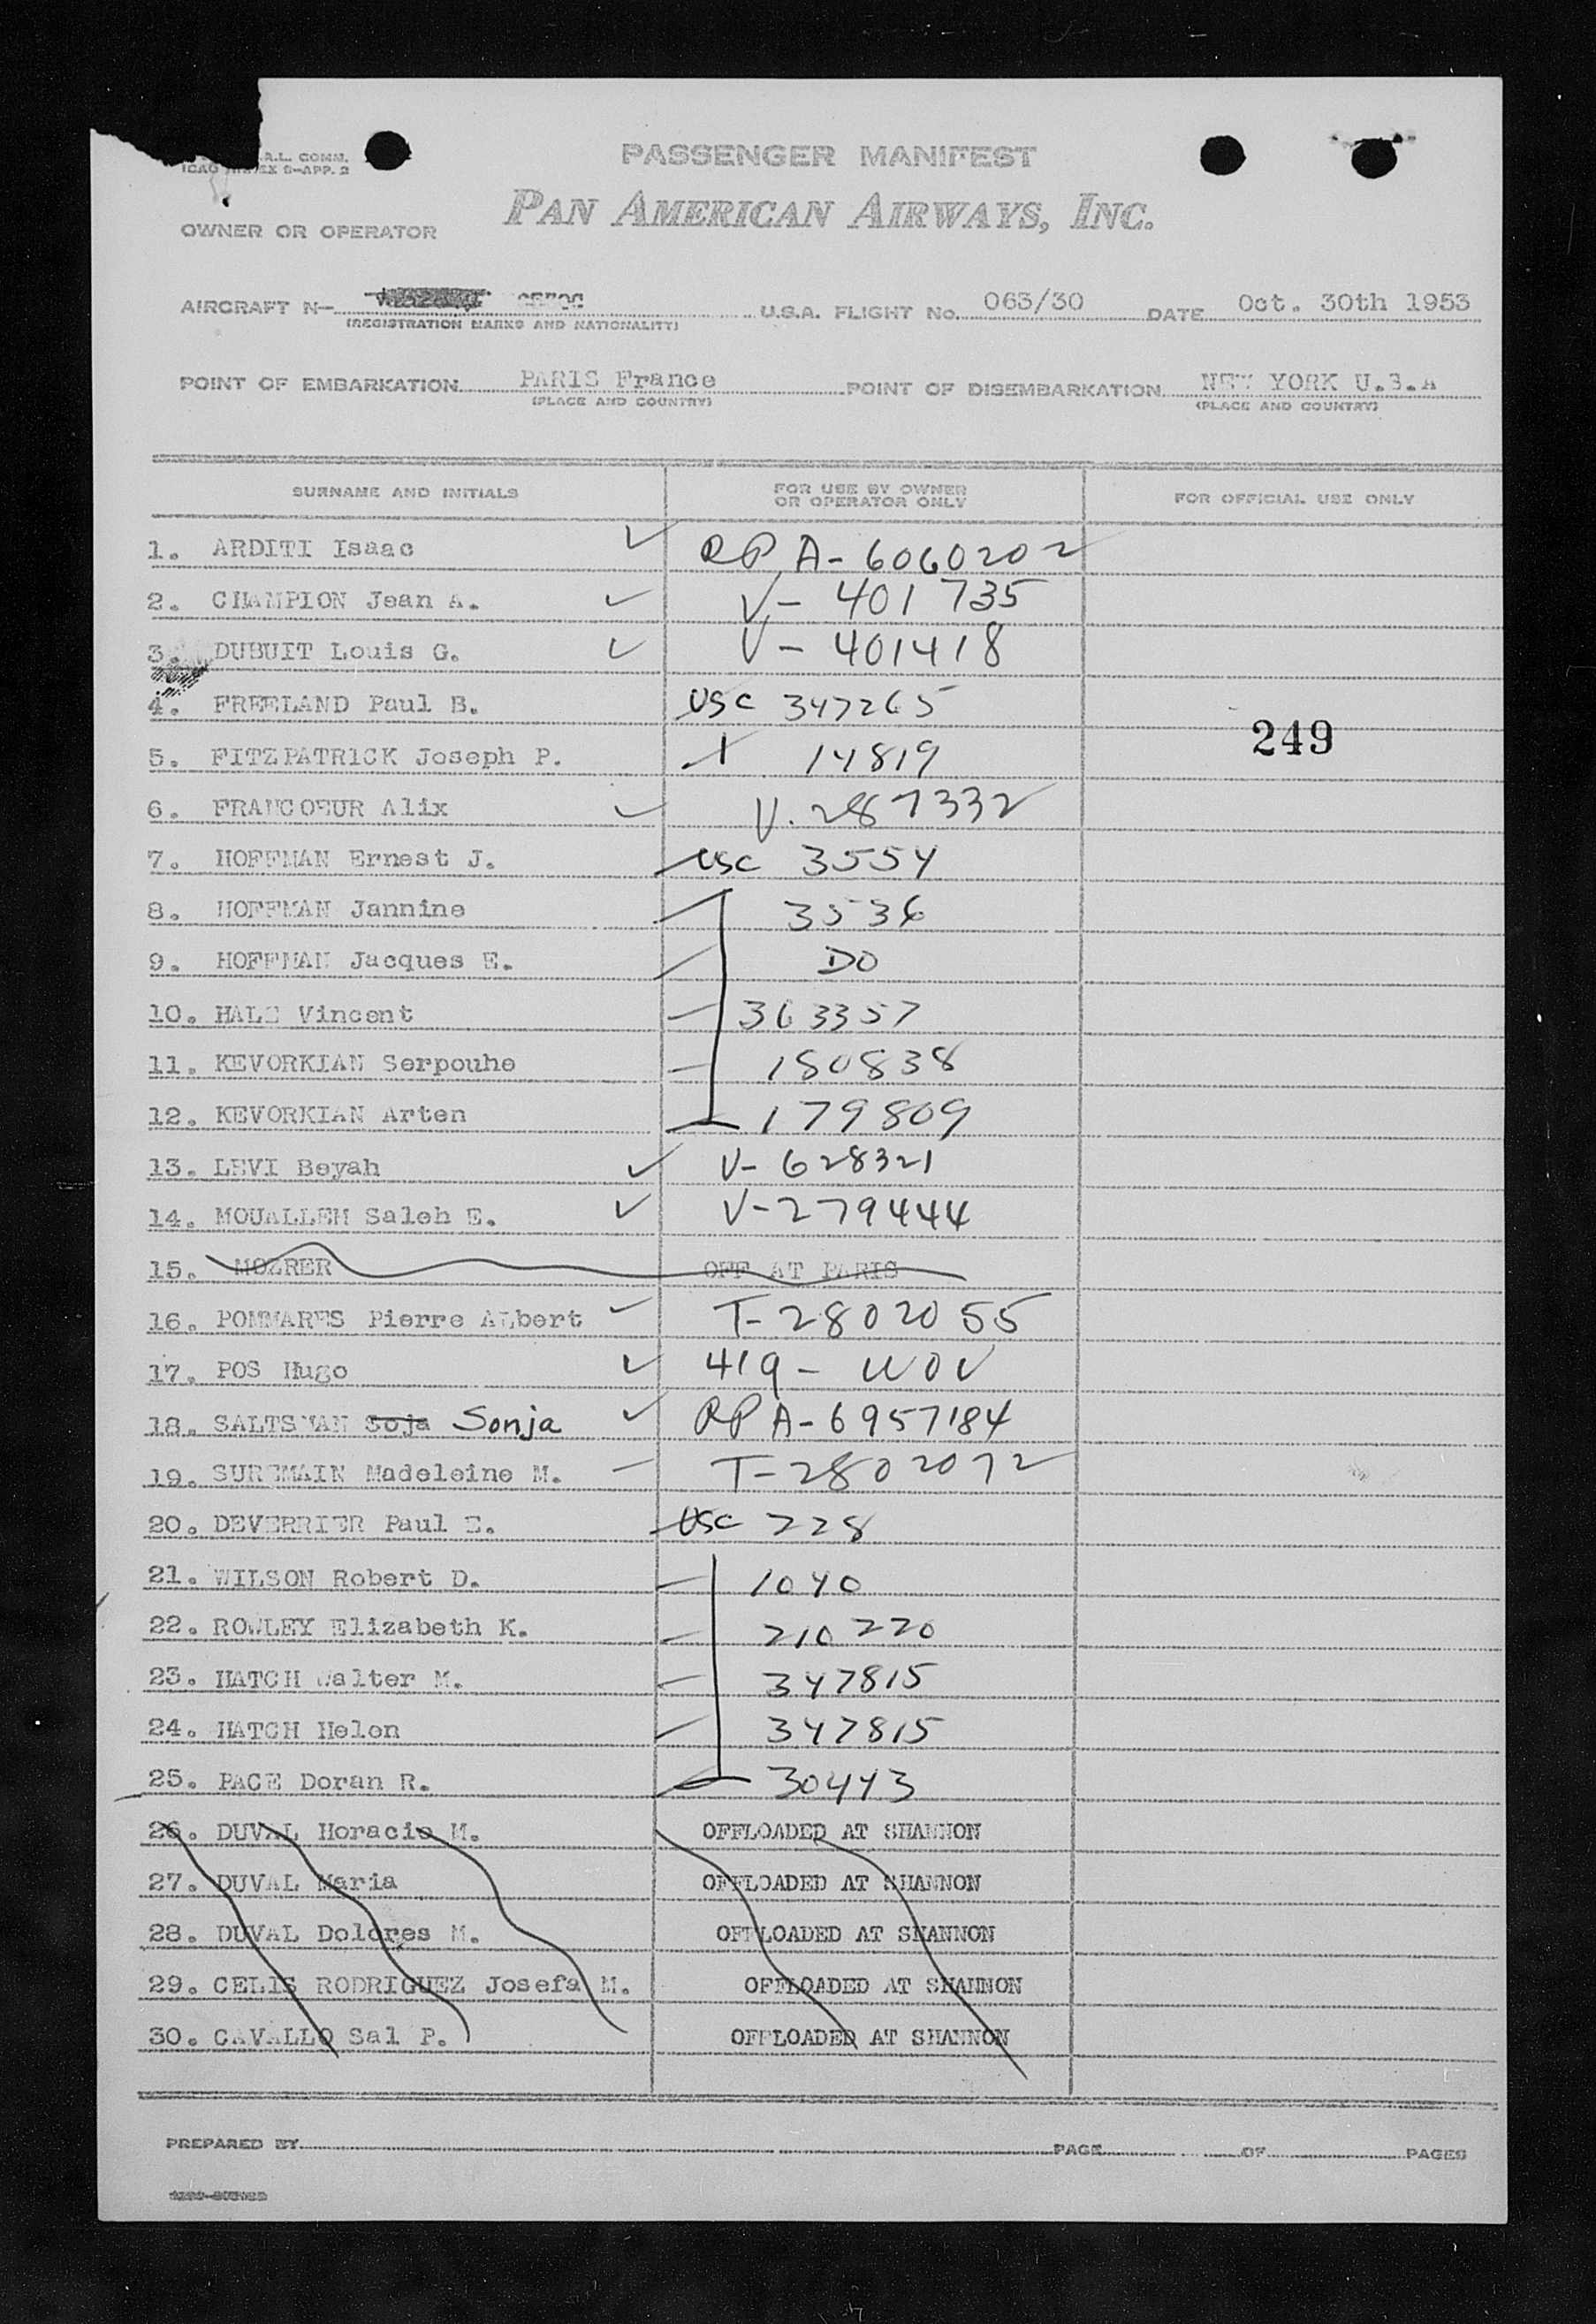 A.L. COMM.
PASSENGER MANIFEST
PAN AMERICAN AIRWAYS, INC.
OWNER OR OPERATOR
AIRCRAFT N— U.S.A. FLIGHT No. 063/30 DATE Oct. 30th 1953
(REGISTRATION MARKS AND NATIONALITY)
POINT OF EMBARKATION PARIS France POINT OF DISEMBARKATION NEW YORK U.S.A
(PLACE AND COUNTRY) (PLACE AND COUNTRY)
SURNAME AND INITIALS FOR USE BY OWNER OR OPERATOR ONLY FOR OFFICIAL USE ONLY
1. ARDITI Isaac RP A-6060202
2. CHAMPION Jean A. V- 401735
3. DUBUIT Louis G. V- 401418
4. FREELAND Paul B. USC 347265
249
5. FITZPATRICK Joseph P. 14819
6. FRANCOEUR Alix V. 287332
7. HOFFMAN Ernest J. USC 3554
8. HOFFMAN Jannine 3536
9. HOFFMAN Jacques E. DO
10. HALE Vincent 363357
11. KEVORKIAN Serpouhe 180838
12. KEVORKIAN Arten 179809
13. LEVI Beyah V- 628321
14. MOUALLEM Saleh E. V-279444
15. OFF AT PARIS
16. POMMARES Pierre Albert T-2802055
17. POS Hugo 419- WOV
18. SALTSMAN Soja Sonja RP A-6957184
19. SUREMAIN Madeleine M. T-2802072
20. DEVERRIER Paul E. USC 228
21. WILSON Robert D. 1040
22. ROWLEY Elizabeth K. 210220
23. HATCH Walter M. 347815
24. HATCH Helen 347815
25. PACE Doran R. 30443
26. DUVAL Horacio M. OFFLOADED AT SHANNON
27. DUVAL Maria OFFLOADED AT SHANNON
28. DUVAL Dolores M. OFFLOADED AT SHANNON
29. CELIS RODRIGUEZ Josefa M. OFFLOADED AT SHANNON
30. CAVALLO Sal P. OFFLOADED AT SHANNON
PREPARED BY PAGE OF PAGES